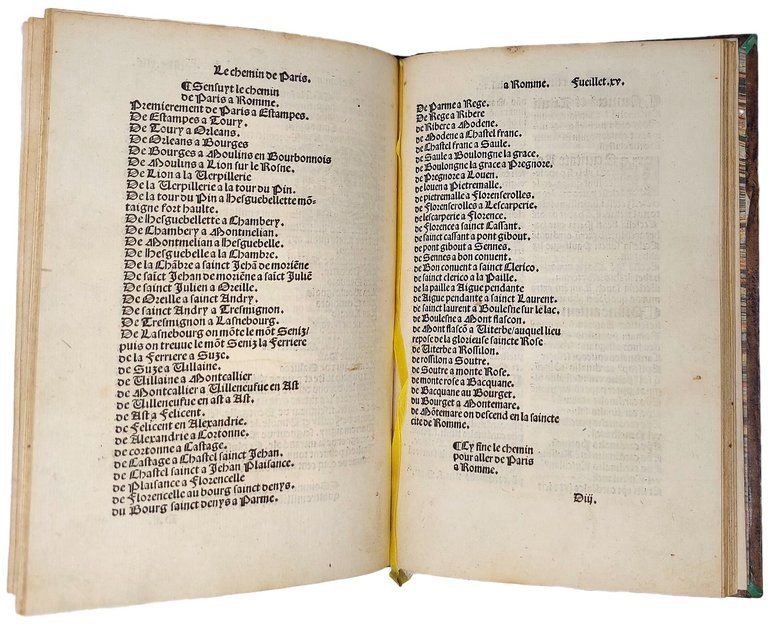 Le chemin de Paris.
¶Sensuyt le chemin
de Paris a Romme.
Premierement de Paris a Estampes.
De Estampes a Toury.
De Toury a Orleans.
De Orleans a Bourges
De Bourges a Moulins en Bourbonnois
De Moulins a Lion sur le Rosne.
De Lion a la Verpillerie
De la Verpillerie a la tour du Pin.
De la tour du Pin a Hesguebellette mõ-
taigne fort haulte.
De Hesguebellette a Chambery.
De Chambery a Montmelian.
De Montmelian a Hesguebelle.
De Hesguebelle a la Chambre.
De la Chãbre a sainct Jehã de moriẽne
De saict Jehan de moriẽne a saict Juliẽ
De sainct Julien a Oreille.
De Oreille a sainct Andry.
De sainct Andry a Tresmignon.
De Tresmignon a Lasnebourg.
De Lasnebourg on mõte le mõt Seniz/
puis on treuue le mõt Seniz la Ferriere
de la Ferriere a Suze.
de Suze a Villaine.
de Villaine a Montcallier
de Montcallier a Villeneufue en Ast
de Villeneufue en ast a Ast.
de Ast a Felicent.
de Felicent en Alexandrie.
de Alexandrie a Cortonne.
de cortonne a Castage.
de Castage a Chastel sainct Jehan.
de Chastel sainct a Jehan Plaisance.
de Plaisance a Florencelle
de Florencelle au bourg sainct denys.
du Bourg sainct denys a Parme.
a Romme. Fueillet.xv.
De Parme a Rege.
De Rege a Ribere
de Ribere a Modene.
de Modene a Chastel franc.
de Chastel franc a Saule.
de Saule a Boulongne la grace.
de Boulongne la grace a Pregnore.
de Pregnore a Louen.
de louen a Pietremalle.
de pietremalle a Florenscrolles.
de Florenscrolles a Lescarperie.
de lescarperie a Florence.
de Florence a sainct Cassant.
de sainct cassant a pont gibout.
de pont gibout a Sennes.
de Sennes a bon conuent.
de Bon conuent a sainct Clerico.
de sainct clerico a la Paille.
de la paille a Aigue pendante
de Aigue pendante a sainct Laurent.
de sainct laurent a Boulesne sur le lac.
de Boulesne a Mont flascon.
de Mont flascõ a Viterbe/auquel lieu
repose de la glorieuse saincte Rose
de Viterbe a Rossilon.
de rossilon a Soutre.
de Soutre a monte Rose.
de monte rose a Bacquane.
de Bacquane au Bourget.
du Bourget a Montemare.
de Mõtemare on descend en la saincte
cite de Romme.
¶Cy fine le chemin
pour aller de Paris
a Romme.
Diij.